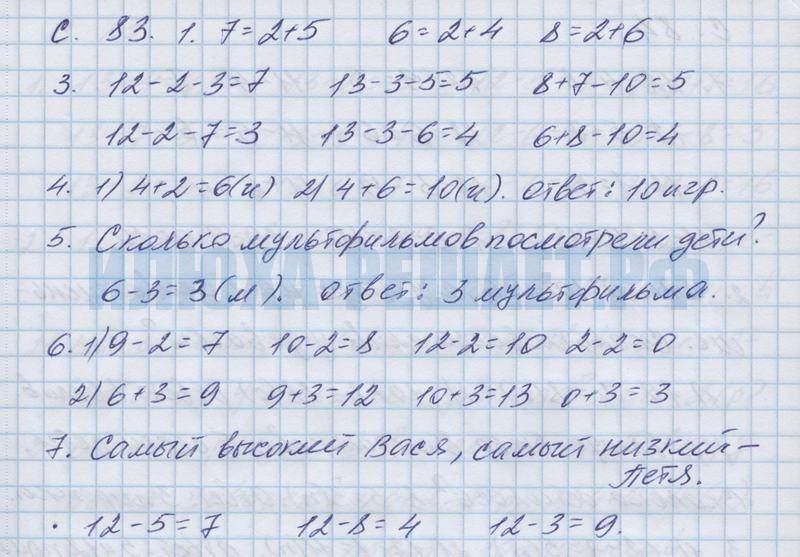 с. 83. 1. 7=2+5 6=2+4 8=2+6
3. 12-2-3=7 13-3-5=5 8+7-10=5
12-2-7=3 13-3-6=4 6+8-10=4
4. 1) 4+2=6(и) 2) 4+6=10(и). ответ: 10 игр.
5. Сколько мультфильмов посмотрели дети?
6-3=3(м). ответ: 3 мультфильма.
6. 1) 9-2=7 10-2=8 12-2=10 2-2=0
2) 6+3=9 9+3=12 10+3=13 0+3=3
7. Самый высокий Вася, самый низкий–
Петя.
. 12-5=7 12-8=4 12-3=9.